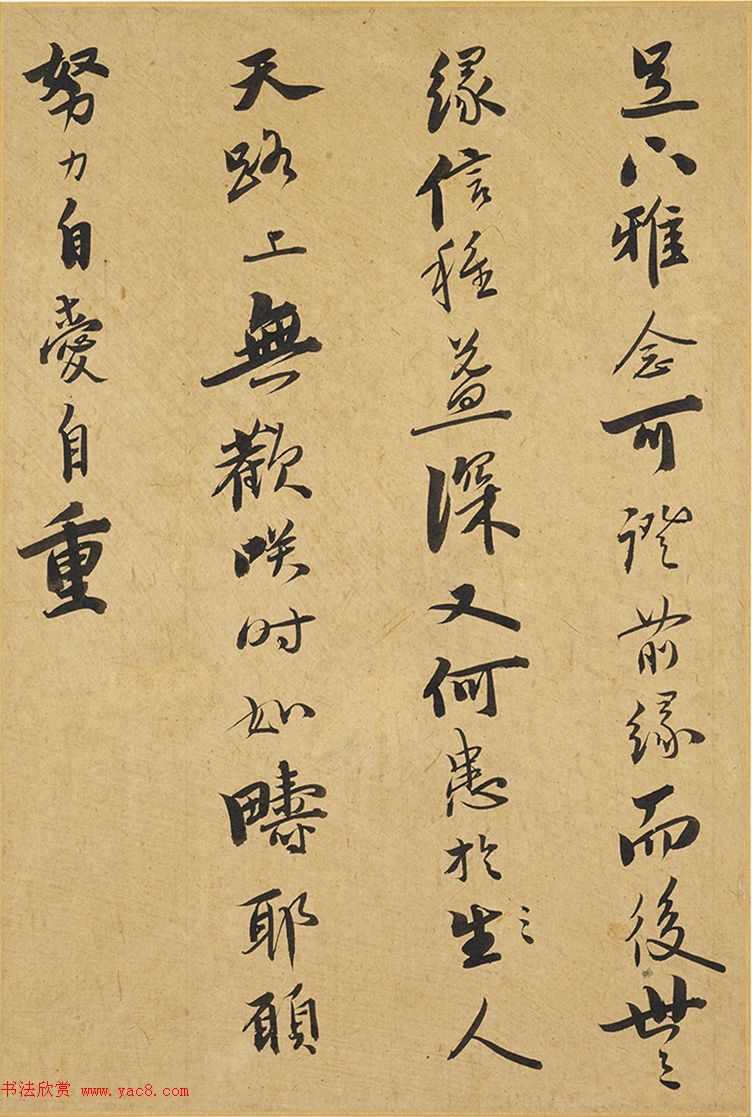 足下雅念可證前緣而後世〻
緣信種並深又何患於生〻人
天路上無歡咲时如疇耶願
努力自愛自重
书法欣赏 www.yac8.com